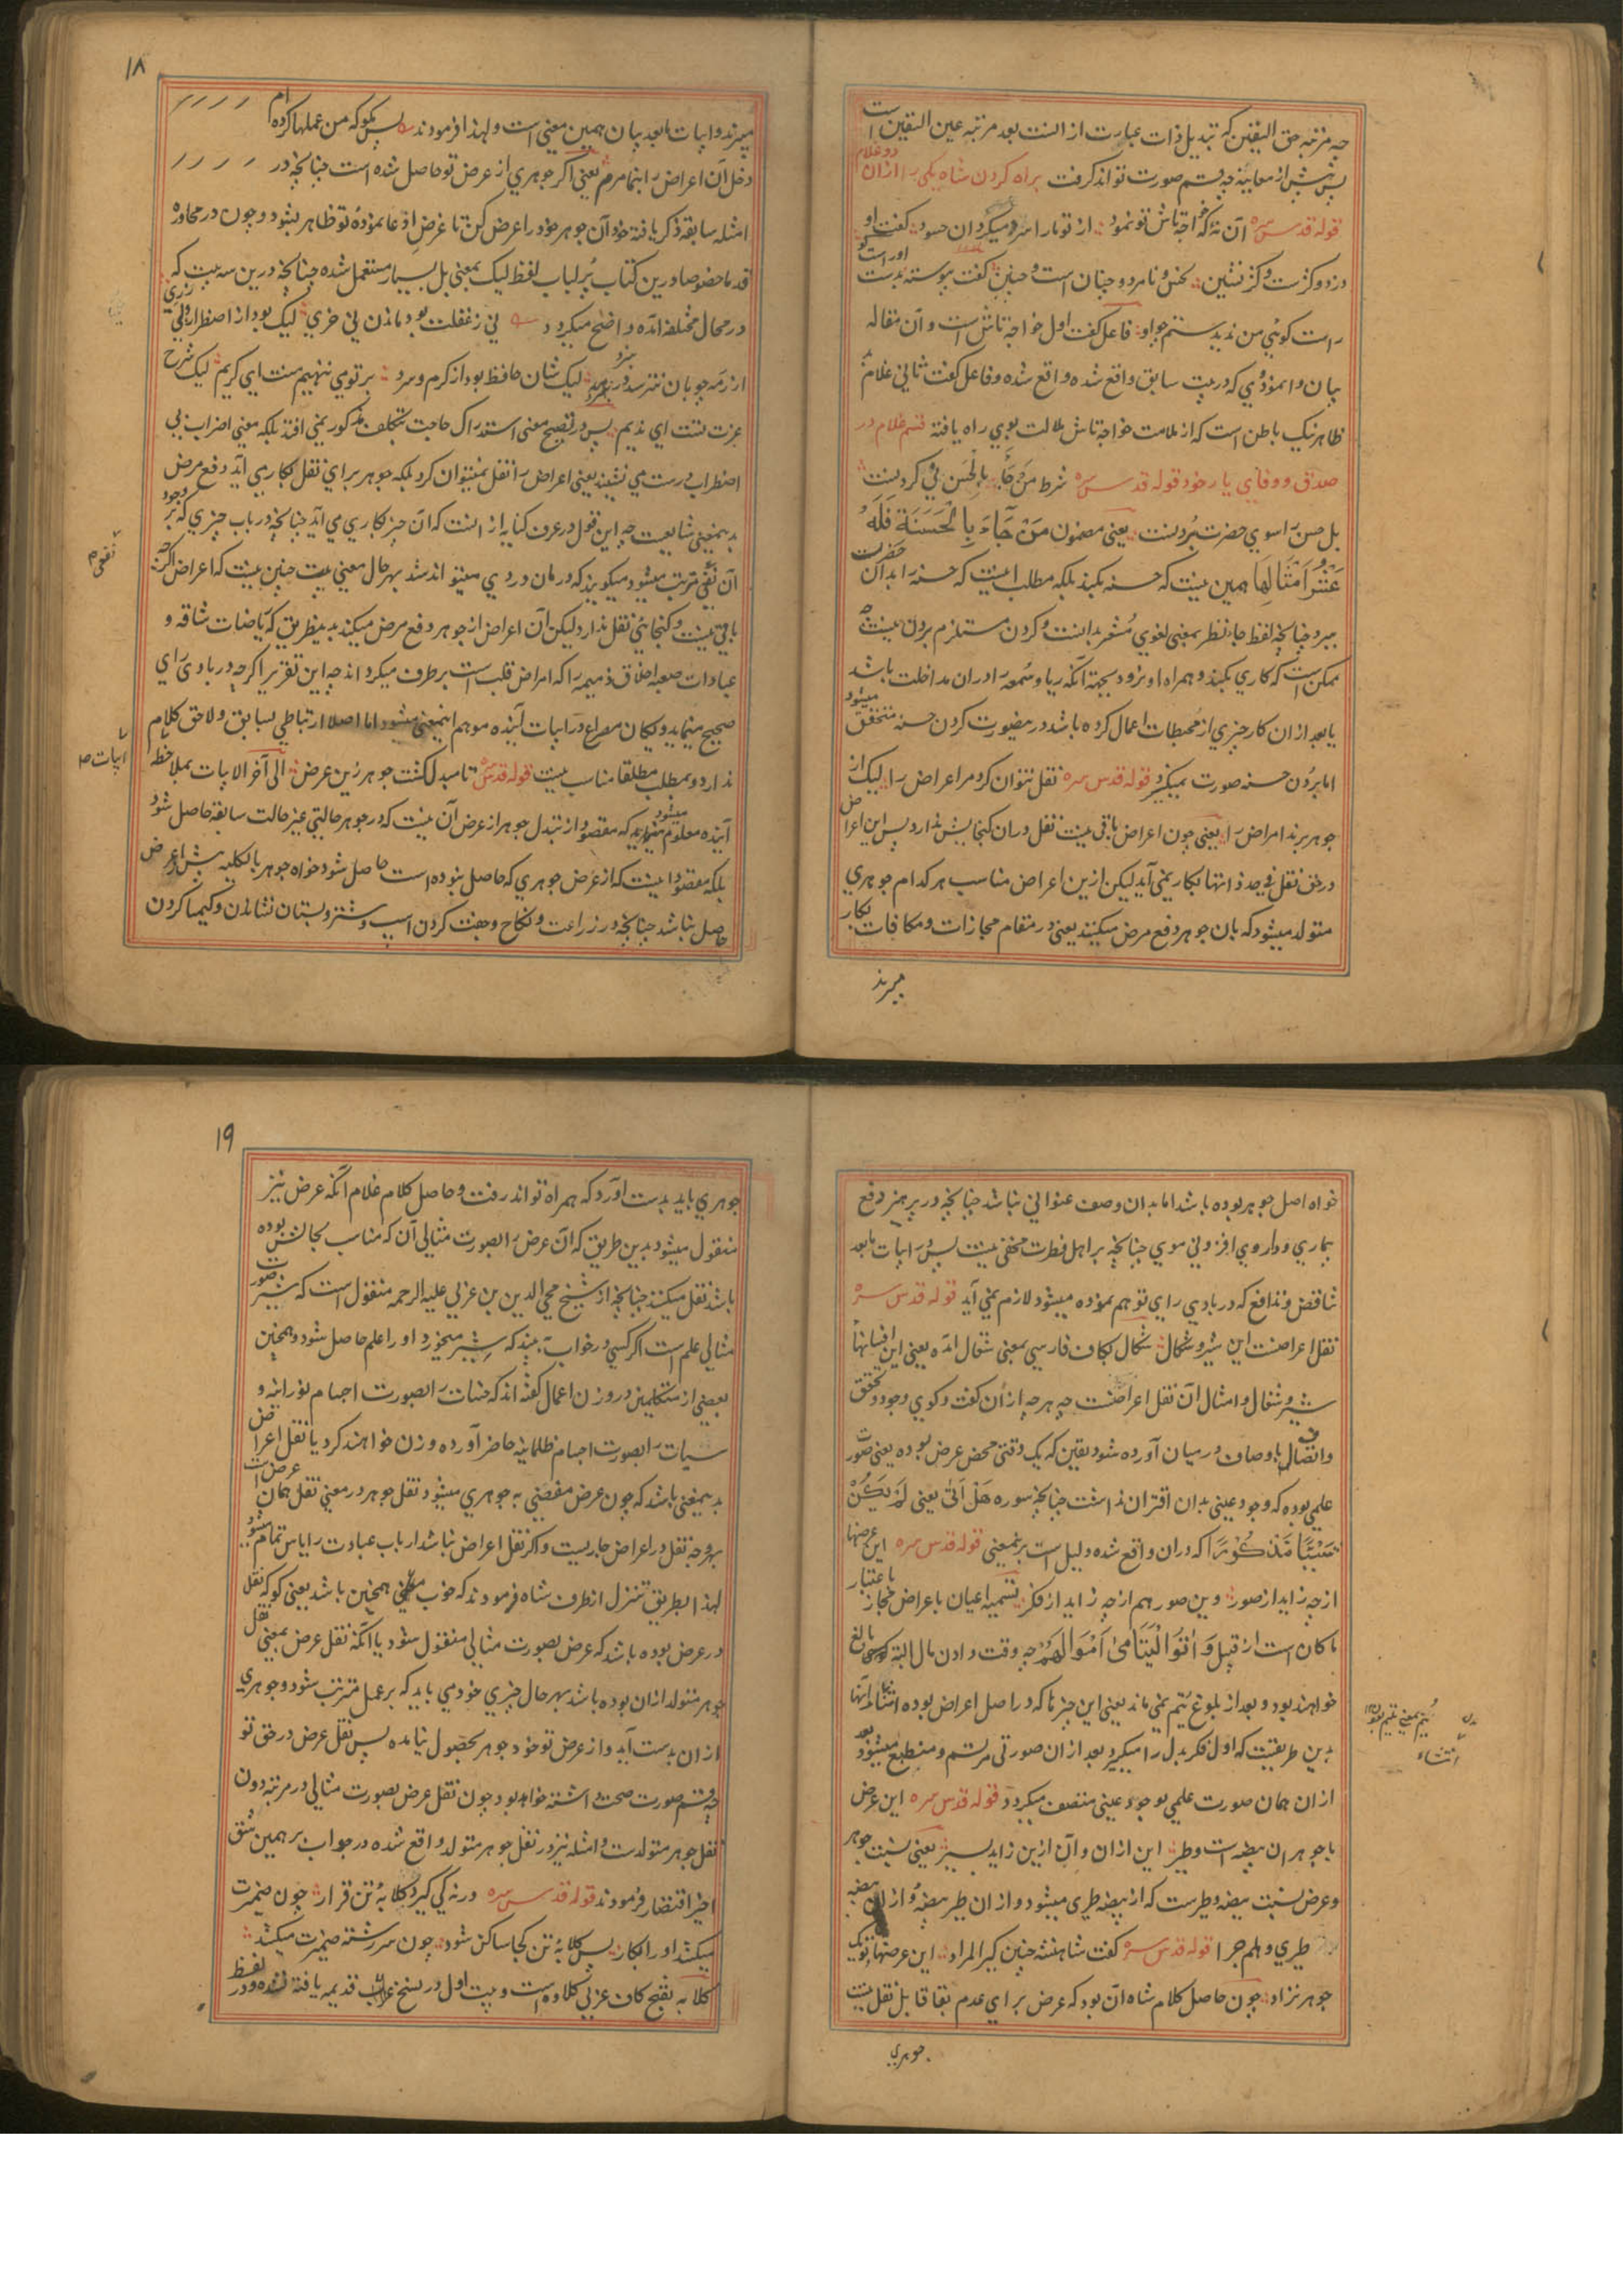 چه مرتبه حق الیقین که تبدیل ذات عبارت از انست بعد مرتبه عین الیقین است
پس پیش از معاینه چه قسم صورت تواند گرفت براه کردن شاه یکی را از ان دو غلام
قوله قدس سره آن نهٔ که خواجه تاش تو نمود از تو مارا سرد میکرد ان حسود گفت او
دزد و کژست و کژ نشین حیز و نامرد و چنان است و چنین گفت پیوسته بدست او راست گو
راست گوئی من ندیدستم چو او فاعل گفت اول خواجه تاش است و آن مقاله
بیان وانمودی که در بیت سابق واقع شده واقع شده و فاعل گفت ثانی غلام
ظاهر نیک باطن است که از ملامت خواجه تاش ملالت بوی راه یافته قسم غلام در
صدق و وفای یار خود قوله قدس سره شرط من جا بالحسن نی کردنست
بل حسن را سوی حضرت بردنست یعنی مضمون مَنْ جَاءَ بِالْحَسَنَةِ فَلَهُ
عَشْرُ اَمْثَالِهَا همین نیست که حسنه بکند بلکه مطلب اینست که حسنه را بدان حضرت
ببرد چنانچه لفظ جاء نظر بمعنی لغوی مُشعر بدانست و کردن مستلزم بردن نیست چه
ممکن است که کاری بکند و همراه او نرود بجهة آنکه ریا و سُمعه را دران مداخلت باشد
یا بعد از ان کار چیزی از محبطات اعمال کرده باشد درینصورت کردن حسنه متحقق میشود
اما بردن حسنه صورت نمیگیرد قوله قدس سره نقل نتوان کرد مر اعراض را لیک از
جوهر برند امراض را یعنی چون اعراض باقی نیست نقل دران گنجایش ندارد پس این اعراض
در حق نقل فی حد ذاتها بکار نمی آید لیکن ازین اعراض مناسب هر کدام جوهری
متولد میشود که بان جوهر دفع مرض میکنند یعنی در مقام مجازات و مکافات بکار
میبرند
۱۸
میبرند و ابیات مابعد بیان همین معنی است و لهذا فرمودند پس مگو که من عملها کرده ام
دخل آن اعراض را بنما مرم یعنی اگر جوهری از عرض تو حاصل شده است چنانچه در
امثله سابقه ذکر یافته خود آن جوهر خود را عرض کن تا غرض ادعا نمودهٔ تو ظاهر بشود و چون در محاوره
قدما خصوصا درین کتاب پُر لباب لفظ لیک بمعنی بل بسیار مستعمل شده چنانچه درین سه بیت که
در محال مختلفه آمده واضح میگردد نی ز غفلت بود ماندن نی خری لیک بود از اضطرار دلبری
از رمه چوپان نترسد در نبرد لیک شان حافظ بود از گرم و سرد بر تو می ننهیم منت ای کریم لیک شرح
عزت تست ای ندیم پس در تصحیح معنی استدراک حاجت بتکلف مذکور نمی افتد بلکه معنی اضراب بی
اضطراب درست می نشیند یعنی اعراض را نقل نمیتوان کرد بلکه جوهر برای نقل بکار می آید و رفع مرض
بدینمعنی شایعست چه این قول در عرف کنایه از انست که آن چیز بکاری می آید چنانچه در باب چیزی که بر وجود
آن نفعی مترتب میشود میگویند که درمان دردی میتواند شد بهر حال معنی بیت چنین نیست که اعراض اگرچه
باقی نیست و گنجایش نقل ندارد لیکن آن اعراض از جوهر دفع مرض میکند بدینطریق که ریاضات شاقه و
عبادات صعبه اخلاق ذمیمه را که امراض قلب است برطرف میگرداند چه این تقریر اگرچه در بادی رای
صحیح مینماید و یکان مصراع در ابیات آینده موهم اینمعنی میشود اما اصلا ارتباطی بسابق و لاحق کلام
ندارد و بمطلب مطلقا مناسب نیست قوله قدس سره تا مبدل گشت جوهر زین عرض الی آخر الابیات بملاحظه
آینده معلوم مینماید میشود که مقصود از تبدل جوهر از عرض آن نیست که در جوهر حالتی غیر حالت سابقه حاصل شود
بلکه مقصود اینست که از عرض جوهری که حاصل نبوده است حاصل شود خواه جوهر بالکلیه پیش از عرض
حاصل نباشد چنانچه در زراعت و نکاح و جفت کردن اسپ و شتر و بستان نشاندن و کیمیا کردن
نفعی م
ابیات ص
خواه اصل جوهر بوده باشد اما بدان وصف عنوانی نباشد چنانچه در پرهیز و دفع
بیماری و داروی افزونی موی چنانچه بر اهل فطرت مخفی نیست پس در ابیات مابعد
تناقض و تدافع که در بادی رای توهم نموده میشود لازم نمی آید قوله قدس سره
نقل اعراضست این شیر و شکال شکال بکاف فارسی بمعنی شغال آمده یعنی این افسانها
شیر و شغال و امثال آن نقل اعراضست چه هر چه از ان گفت و گوی وجود و تحقق
و اتصاف باوصاف در میان آورده شود یقین که یک وقتی محض عرض بوده یعنی صورت
علمی بوده که وجود عینی بدان اقتران نداشت چنانچه سوره هَلْ اَتٰی یعنی لَمْ یَکُنْ
شَیْئًا مَذْکُوْرًا که دران واقع شده دلیل است برینمعنی قوله قدس سره این عرضها
از چه زاید از صور وین صور هم از چه زاید از فکر تسمیه اعیان باعراض مجاز باعتبار
ما کان است از قبیل وَ اٰتُوا الْیَتَامٰی اَمْوَالَهُمْ چه وقت دادن مال البته بالغ
خواهند بود و بعد از بلوغ یُتم نمی ماند یعنی این چیزها که در اصل اعراض بوده انتشاء آنها
بدین طریقست که اول فکر بدل را میگیرد بعد از ان صورتی مرتسم و منطبع میشود بعد
از ان همان صورت علمی بوجود عینی متصف میگردد قوله قدس سره این عرض
با جوهر آن بیضه است و طیر این از ان و آن ازین زاید بسیر یعنی نسبت جوهر
و عرض نسبت بیضه و طیرست که از بیضه طیری میشود و از ان طیر بیضهٔ و از ان بیضه
طیری و هلم جرا قوله قدس سره گفت شاهنشه چنین گیر المراد این عرضهای تو یک
جوهر نزاد چون حاصل کلام شاه آن بود که عرض برای عدم بقا قابل نقل نیست
جوهری
انتشاء
۱۹
جوهری باید بدست آورد که همراه تواند رفت و حاصل کلام غلام آنکه عرض نیز
منقول میشود بدین طریق که آن عرض را بصورت مثالی آن که مناسب بحالش بوده
باشد نقل میکنند چنانچه از شیخ محی الدین بن عربی علیه الرحمه منقول است که شیر صورت
مثالی علم است اگر کسی در خواب بیند که شیر میخورد او را علم حاصل شود و همچنین
بعضی از متکلمین در وزن اعمال گفته اند که حسنات را بصورت اجسام نورانیه و
سیات را بصورت اجسام ظلمانیه حاضر آورده وزن خواهند کرد یا نقل اعراض
بدینمعنی باشد که چون عرض مفضی به جوهری میشود نقل جوهر در معنی نقل همان عرض است
بهر وجه نقل در اعراض جاریست و اگر نقل اعراض نباشد ارباب عبادت را یاس تمام میشود
لهذا بطریق تنزل از طرف شاه فرمودند که خوب همچنین باشد یعنی گو که نقل
در عرض بوده باشد که عرض بصورت مثالی منقول شود یا آنکه نقل عرض بمعنی نقل
جوهر متولد از ان بوده باشد بهر حال چیزی خود می باید که بر عمل مترتب شود و جوهری
از ان بدست آید و از عرض تو خود جوهر بحصول نیامده پس نقل عرض در حق تو
چه قسم صورت صحت داشته خواهد بود و چون نقل عرض بصورت مثالی در مرتبه دون
نقل جوهر متولدست و امثله نیز در نقل جوهر متولد واقع شده در جواب بر همین شق
اخیر اقتصار فرمودند قوله قدس سره ورنه کی گیرد کلابهٔ تن قرار چون ضمیرت
میکشد او را بکار پس کلابهٔ تن کجا ساکن شود چون سر رشته ضمیرت میکشد
کلابه بفتح کاف عربی کلاوه است و بیت اول در نسخ قدیمه یافته نشده و در لفظ